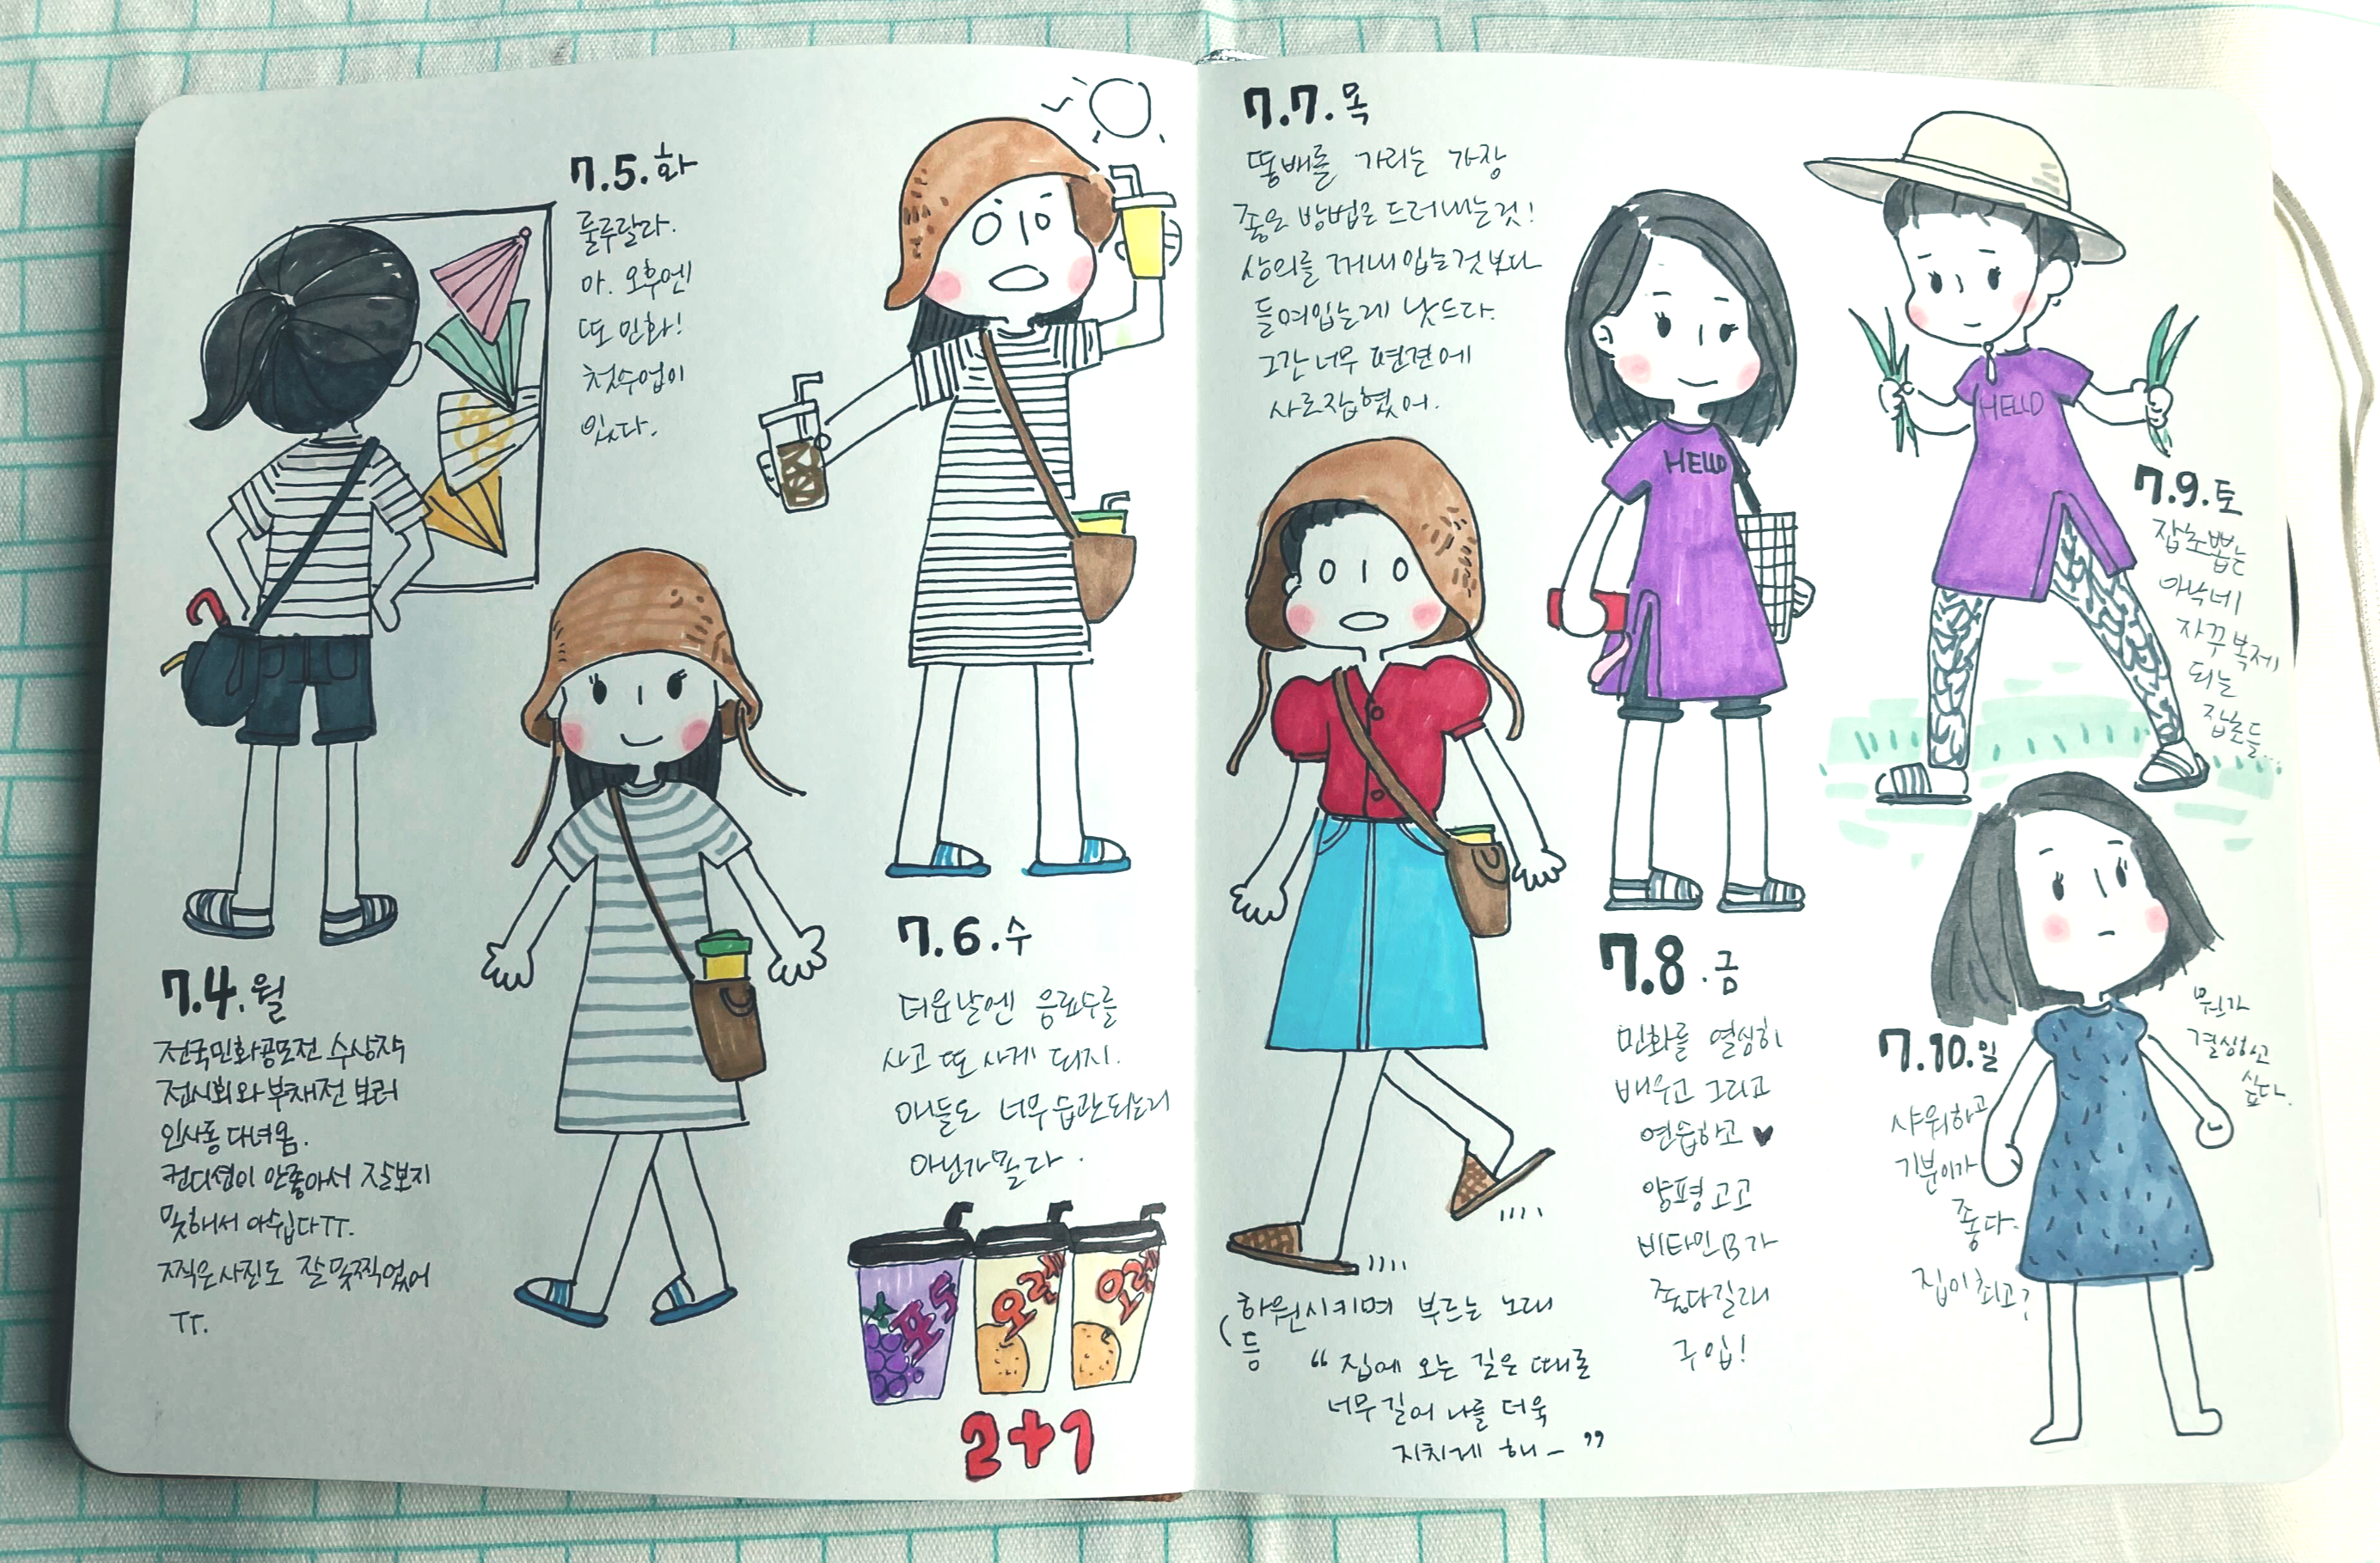 7.4.월
전국민화공모전 수상작
전시회와 부채전 보러
인사동 다녀옴.
컨디션이 안좋아서 잘보지
못해서 아쉽다TT.
찍은사진도 잘못찍었어
TT.
7.5.화
룰루랄라.
아. 오후엔
또 민화!
첫수업이
있다.
7.6.수
더운날엔 음료수를
사고 또 사게 되지.
애들도 너무 습관되는거
아닌가몰라.
포도
오렌지
오렌지
2+1
7.7.목
똥배를 가리는 가장
좋은 방법은 드러내는것!
상의를 꺼내입는것보다
들여입는게 낫드라.
그간 너무 편견에
사로잡혔어.
(하원시키며 부르는 노래
등
“집에 오는 길은 때론
너무 길어 나를 더욱
지치게 해-”
HELLO
7.8.금
민화를 열심히
배우고 그리고
연습하고 ♥
양평 고고
비타민B가
좋다길래
구입!
HELLO
7.9.토
잡초뽑는
아낙네
자꾸 복제
되는
잡초들...
7.10.일
샤워하고
기분이가
좋다.
집이최고?
뭔가
결심하고
싶다.